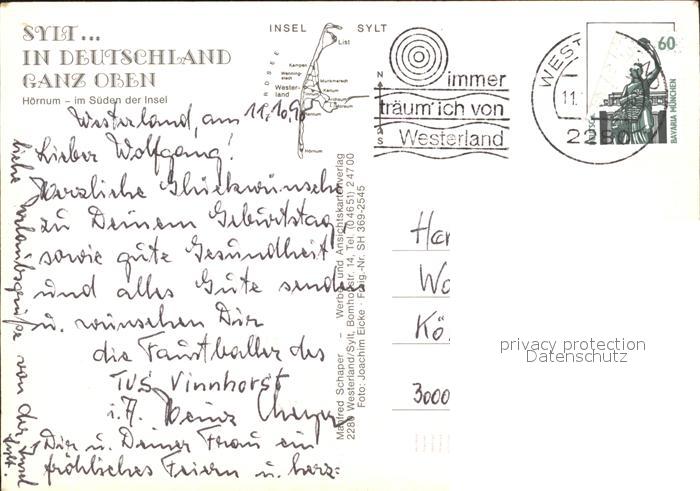 SYLT...
IN DEUTSCHLAND
GANZ OBEN
Hörnum – im Süden der Insel
INSEL SYLT
List
NORDSEE
Kampen
Wenningstedt
Munkmarsch
Westerland
Keitum
Hörnum
N
S
immer
träum' ich von
Westerland
WEST
11.
2280
60
BAYARIA MÜNCHEN
Westerland, am 11.10.90
Lieber Wolfgang!
Herzliche Glückwünsche
zu Deinem Geburtstag
sowie gute Gesundheit
und alles Gute senden
u. wünschen Dir
die Faustballer des
TUS Vinnhorst
i.A. Heinz
Dir u. Deiner Frau ein
fröhliches Feiern u. herz=
liche Urlaubsgrüße von der Insel
Sylt.
Manfred Schaper – Werbe- und Ansichtskartenverlag
2280 Westerland/Sylt, Bomhoffstr. 14, Tel. (04651) 24700
Foto: Joachim Eicke · Freig.-Nr. SH 369-2545
Her
Wo
Kö
3000
privacy protection
Datenschutz